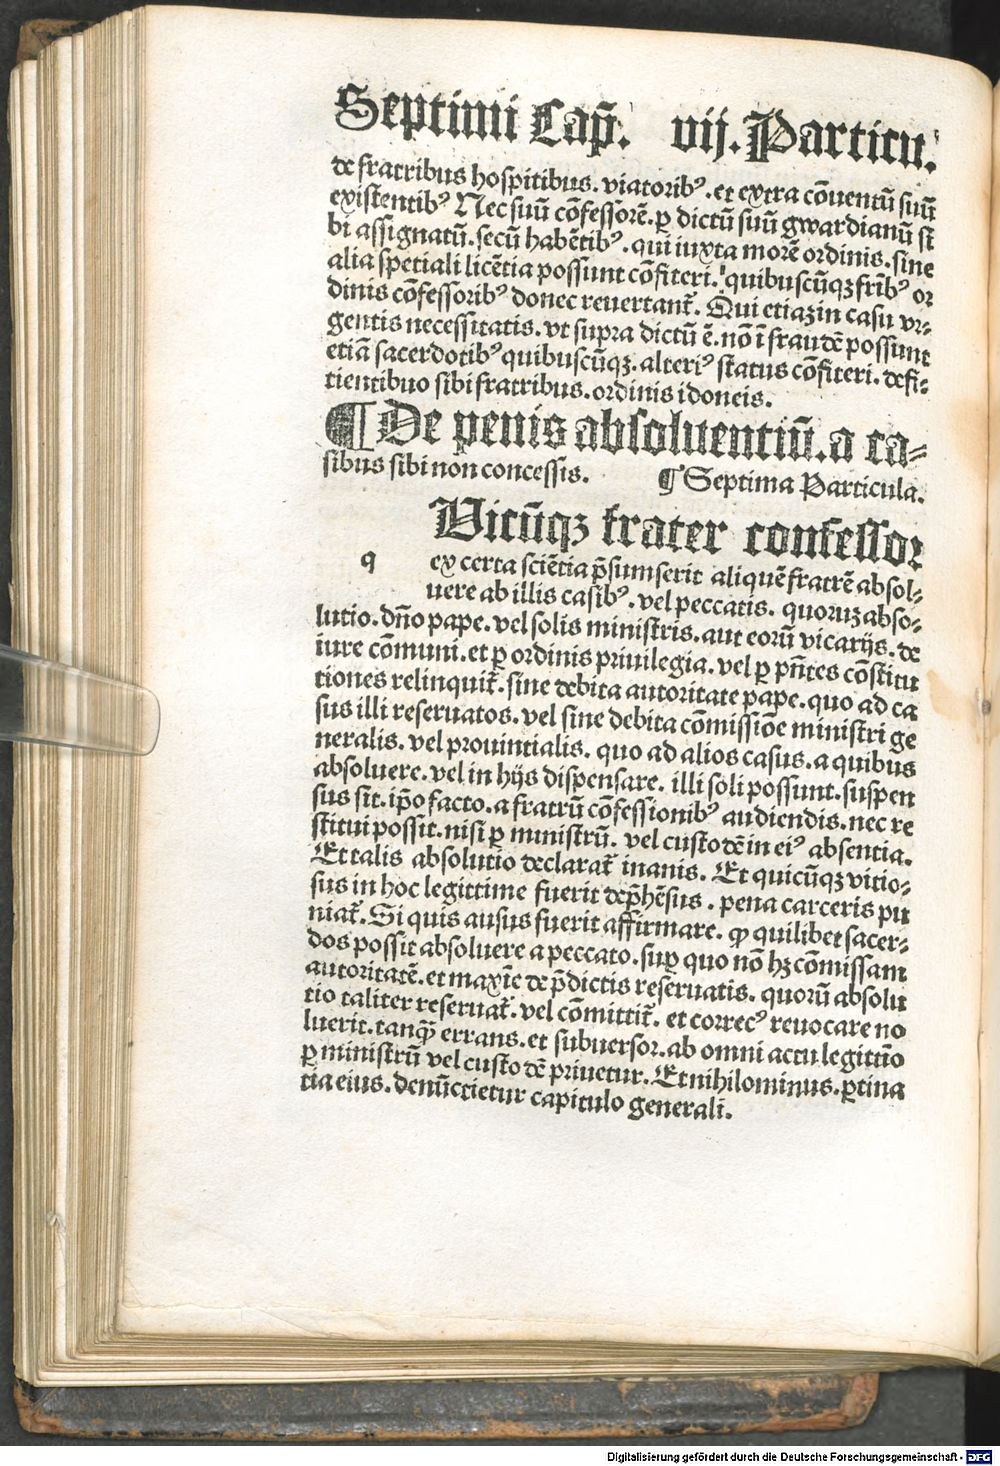 Septimi Cap̃. vij. Particu.
de fratribus hospitibus. viatorib⁹. et extra cōuentū suū
existentib⁹ Nec suū cōfessorē. ꝑ dictū suū gwardianū si
bi assignatū. secū habētib⁹. qui iuxta morē ordinis. sine
alia spetiali licētia possunt cōfiteri. quibuscūqꝫ frīb⁹ or
dinis cōfessorib⁹ donec reuertant᷑. Qui etiaꝫ in casu vr⸗
gentis necessitatis. vt supra dictū ē. nō ī fraudē possunt
etiā sacerdotib⁹ quibuscūqꝫ. alteri⁹ status cōfiteri. defi⸗
tientibuo sibi fratribus. ordinis idoneis.
¶ De penis absoluentiū. a ca⸗
sibus sibi non concessis. ¶ Septima Particula.
Vicūqꝫ frater confessor
q ex certa sciētia p̄sumserit aliquē fratrē absol⸗
uere ab illis casib⁹. vel peccatis. quoruꝫ abso⸗
lutio. dn̄o pape. vel solis ministris. aut eorū vicarijs. de
iure cōmuni. et ꝑ ordinis priuilegia. vel ꝑ pn̄tes cōstitu
tiones relinquit᷑. sine debita autoritate pape. quo ad ca
sus illi reseruatos. vel sine debita cōmissiōe ministri ge
neralis. vel prouintialis. quo ad alios casus. a quibus
absoluere. vel in hijs dispensare. illi soli possunt. suspen
sus sit. ip̄o facto. a fratrū cōfessionib⁹ audiendis. nec re
stitui possit. nisi ꝑ ministrū. vel custodē in ei⁹ absentia.
Et talis absolutio declarat᷑ inanis. Et quicūqꝫ vitio⸗
sus in hoc legittime fuerit dep̄hēsus. pena carceris pu
niat᷑. Si quis ausus fuerit affirmare. ꝙ quilibet sacer⸗
dos possit absoluere a peccato. suꝑ quo nō hꝫ cōmissam
autoritatē. et maxīe de p̄dictis reseruatis. quorū absolu
tio taliter reseruat᷑. vel cōmittit᷑. et correc⁹ reuocare no
luerit. tanq̄ꝫ errans. et subuersor. ab omni actu legittīo
ꝑ ministrū vel custodē priuetur. Et nihilominus. ꝑtina
tia eius. denūctietur capitulo generali.
Digitalisierung gefördert durch die Deutsche Forschungsgemeinschaft - DFG